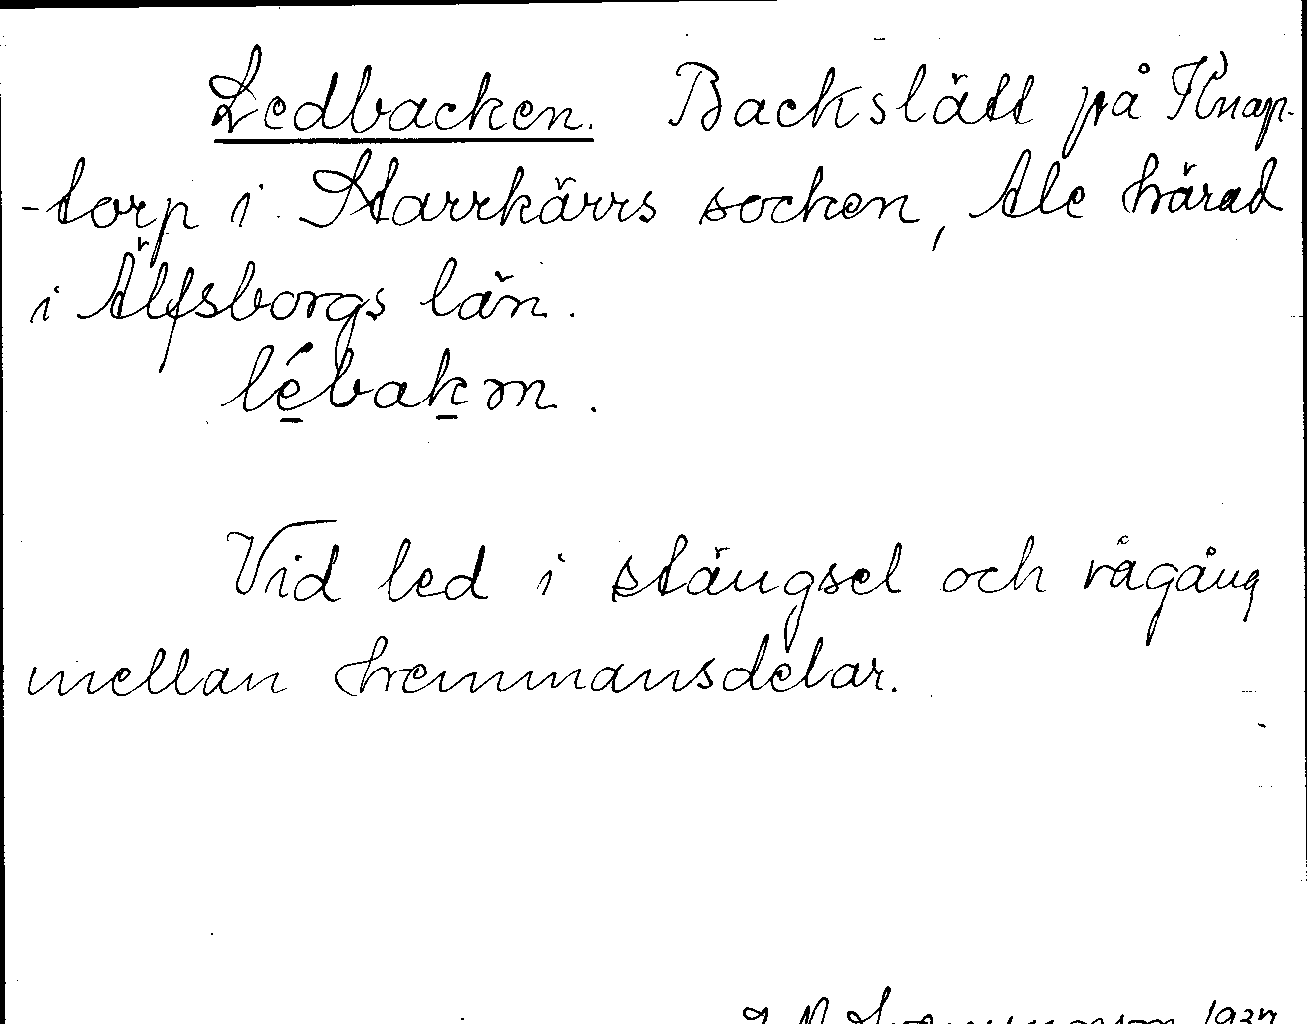 Ledbacken. Backslätt på Knap-
-torp i Starrkärrs socken, Ale härad
i Älfsborgs län.
lébakm.
Vid led i stängsel och rågång
mellan hemmansdelar.
1937